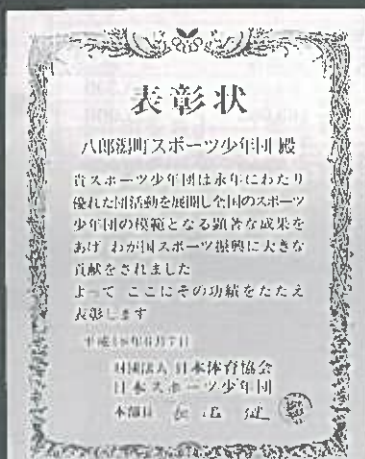 表彰状
八郎潟町スポーツ少年団 殿
貴スポーツ少年団は永年にわたり
優れた団活動を展開し全国のスポーツ
少年団の模範となる顕著な成果を
あげ わが国スポーツ振興に大きな
貢献をされました
よって ここにその功績をたたえ
表彰します
平成18年6月7日
財団法人 日本体育協会
日本スポーツ少年団
本部長